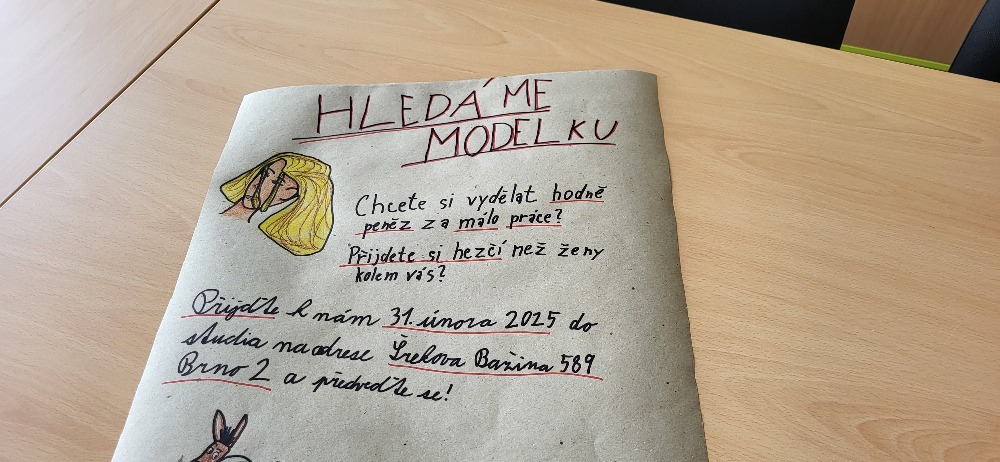 HLEDÁME
MODELKU
Chcete si vydělat hodně
peněz za málo práce?
Přijdete si hezčí než ženy
kolem vás?
Přijďte k nám 31. února 2025 do
studia na adrese Šrekova Bažina 589
Brno 2 a předveďte se!